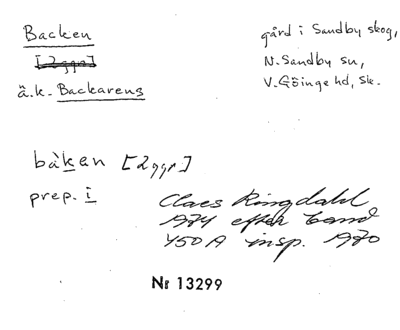 Backen
[2ggr]
ä.k. Backarens
gård i Sandby skog,
N. Sandby sn,
V. Göinge hd, Sk.
bàkan [2ggr]
prep. i
Claes Ringdahl
1974 efter band
450 A insp. 1970
Nr 13299